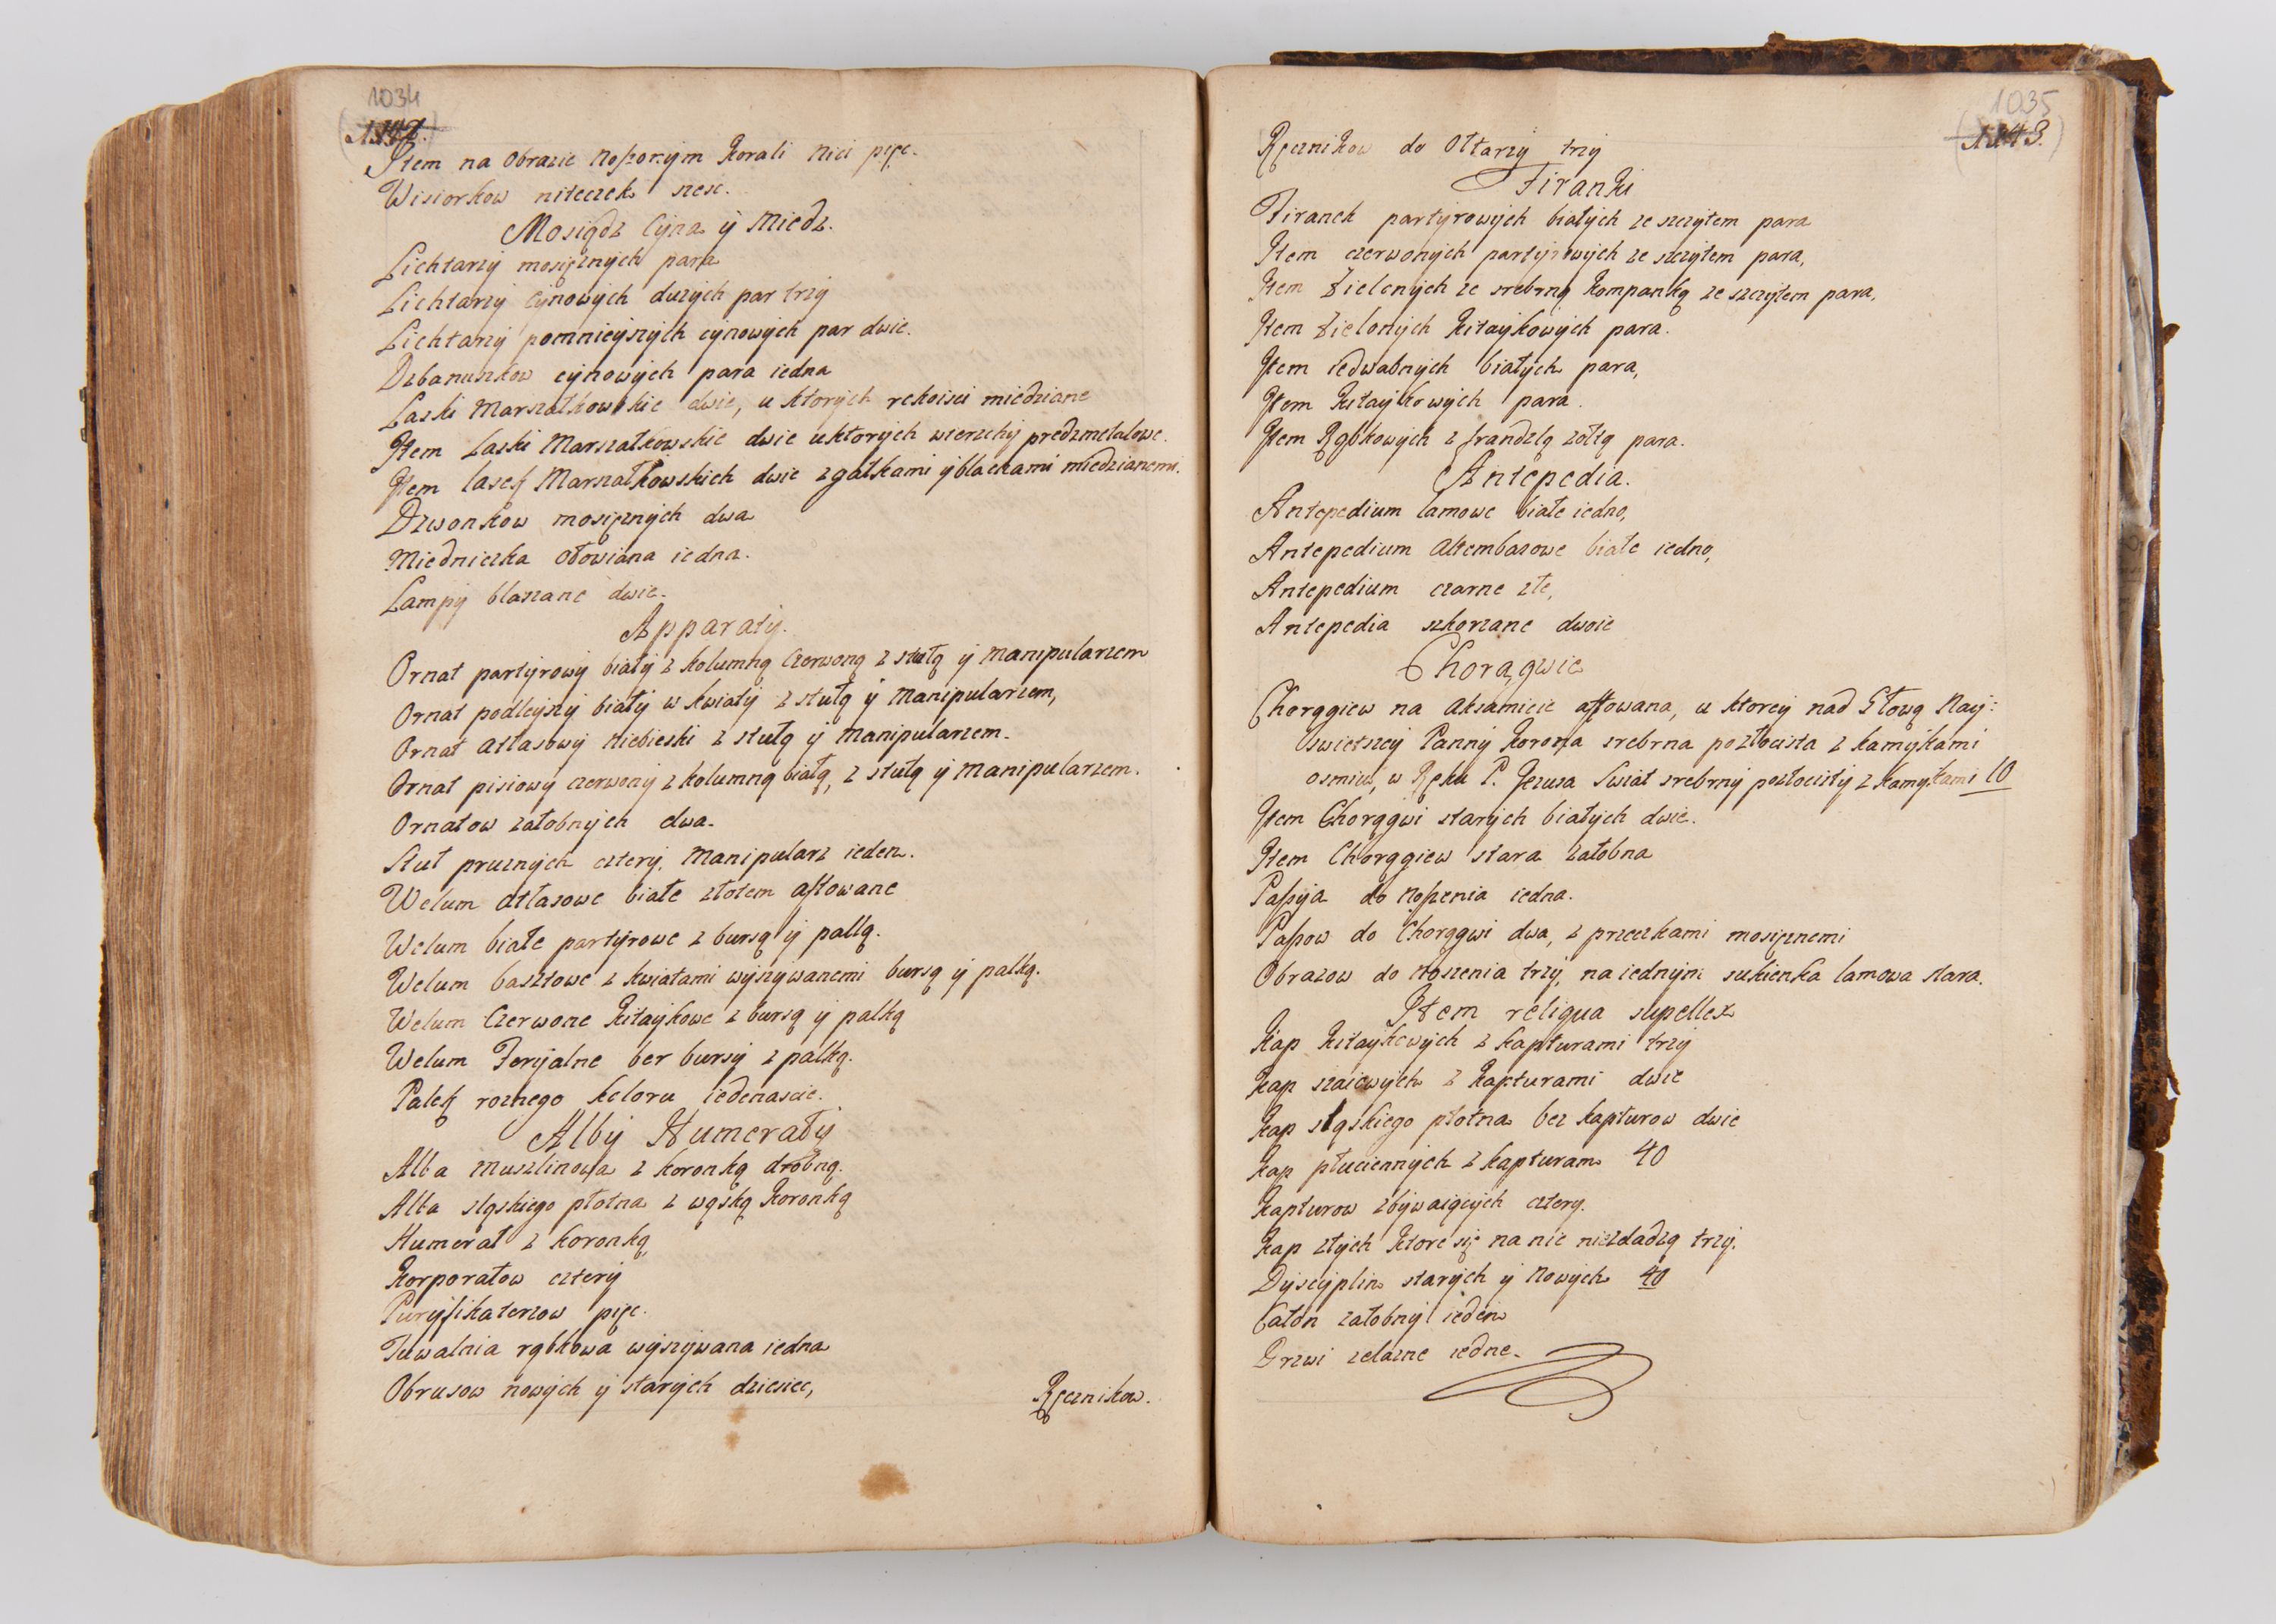 1034
1142.
Item na Obrazie noszonym Korali nici pięc.
Wisiorkow niteczek szesc.
Mosiądz Cyna y Miedz.
Lichtarzy mosięznych para
Lichtarzy Cynowych duzych par trzy
Lichtarzy pomnieyszych cynowych par dwie.
Dzbanuszkow cynowych para iedna
Laski Marszałkowskie dwie, u ktorych rekoisci miedziane
Item Laski Marszałkowskie dwie u ktorych wierzchy predzmetalowe.
Item lasek Marszałkowskich dwie z gałkami y blachami miedzianemi.
Dzwonkow mosięznych dwa
Miedniczka ołowiana iedna.
Lampy blaszane dwie.
Apparaty.
Ornat partyrowy biały z kolumną Czerwoną z stułą y manipularzem
Ornat podleyszy biały w kwiaty z stułą y manipularzem,
Ornat atłasowy niebieski z stułą y manipularzem.
Ornat pisiowy czerwony z kolumną białą, z stułą y manipularzem.
Ornatow załobnych dwa.
Stuł pruznych cztery, manipularz ieden.
Welum atłasowe białe złotem aftowane
Welum białe partyrowe z bursą y pallą.
Welum basztowe z kwiatami wyszywanemi bursą y palką.
Welum Czerwone Kitaykowe z bursą y palką
Welum Feryjalne bez bursy z palką.
Palek roznego koloru iedenascie.
Alby Humerały
Alba muszlinowa z koronką drobną.
Alba sląskiego płotna z wąską Koronką
Humerał z koronką
Korporałow cztery
Puryfikaterzow pięc.
Tuwalnia rąbkowa wyszywana iedna
Obrusow nowych y starych dziesiec,
Ręcznikow.
1035
1143.
Ręcznikow do Ołtarzy trzy
Firanki
Firanek partyrowych białych ze szczytem para
Item czerwonych partyrowych ze szczytem para,
Item Zielonych ze srebrną Kompanką ze szczytem para,
Item Zielonych Kitaykowych para.
Item iedwabnych białych para,
Item Kitaykowych para.
Item Rąbkowych z frandzlą zołtą para.
Antepedia.
Antepedium lamowe białe iedno,
Antepedium altembasowe białe iedno,
Antepedium czarne złe,
Antepedia szkorzane dwoie
Chorągwie
Chorągiew na aksamicie aftowana, u ktorey nad Głową Nay:
swietszey Panny Korona srebrna pozłocista z kamykami
osmiu, w Ręku P. Jezusa Swiat srebrny pozłocisty z kamykami 10
Item Chorągwi starych białych dwie.
Item Chorągiew stara załobna
Paszyja do noszenia iedna.
Pasow do Chorągwi dwa, z przeczkami mosięznemi
Obrazow do noszenia trzy, na iednym sukienka lamowa stara.
Item religua supellex
Kap Kitaykowych z kapturami trzy
Kap szaiowych z kapturami dwie
Kap sląskiego płotna bez kapturow dwie
Kap płuciennych z kapturam 40
Kapturow zbywaiących cztery.
Kap złych ktore się na nic niezdadzą trzy.
Dyscyplin starych y nowych 40
Całon załobny ieden
Drzwi zelazne iedne.